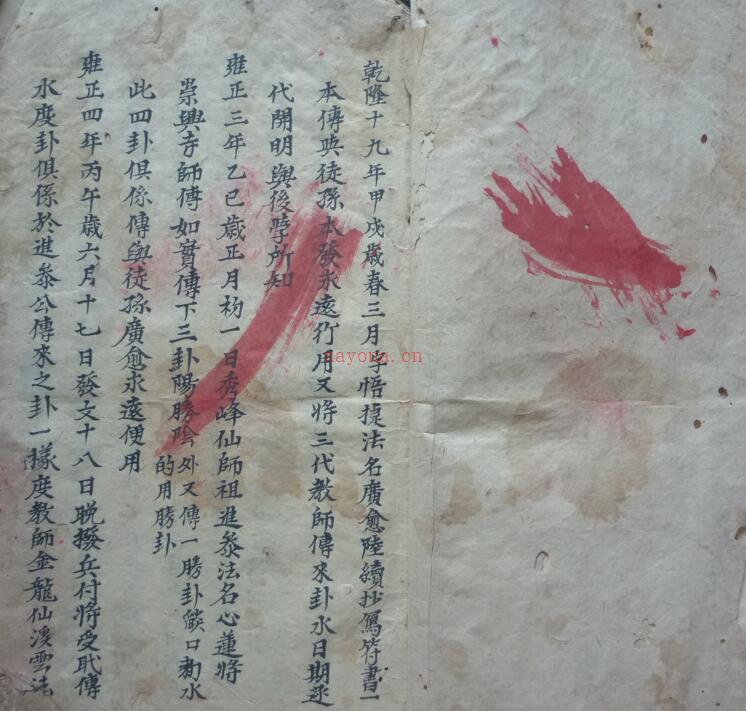 乾隆十九年甲戌歲春三月字悟㨗法名廣愈陸續抄寫符書一
本傳與徒孫本發永遠行用又將三代教師傳來卦水日期逐
代開明與後學所知
雍正三年乙巳歲正月初一日秀峰仙師祖進叅法名心蓮將
崇興寺師傳如實傳下三卦陽勝陰外又傳一勝卦燄口勑水
的用勝卦
此四卦俱係傳與徒孫廣愈永遠便用
雍正四年丙午歲六月十七日發文十八日晚撥兵付將受耽傳
水度卦俱係於進叅公傳來之卦一樣度教師金龍仙溪雲法
nayona.cn